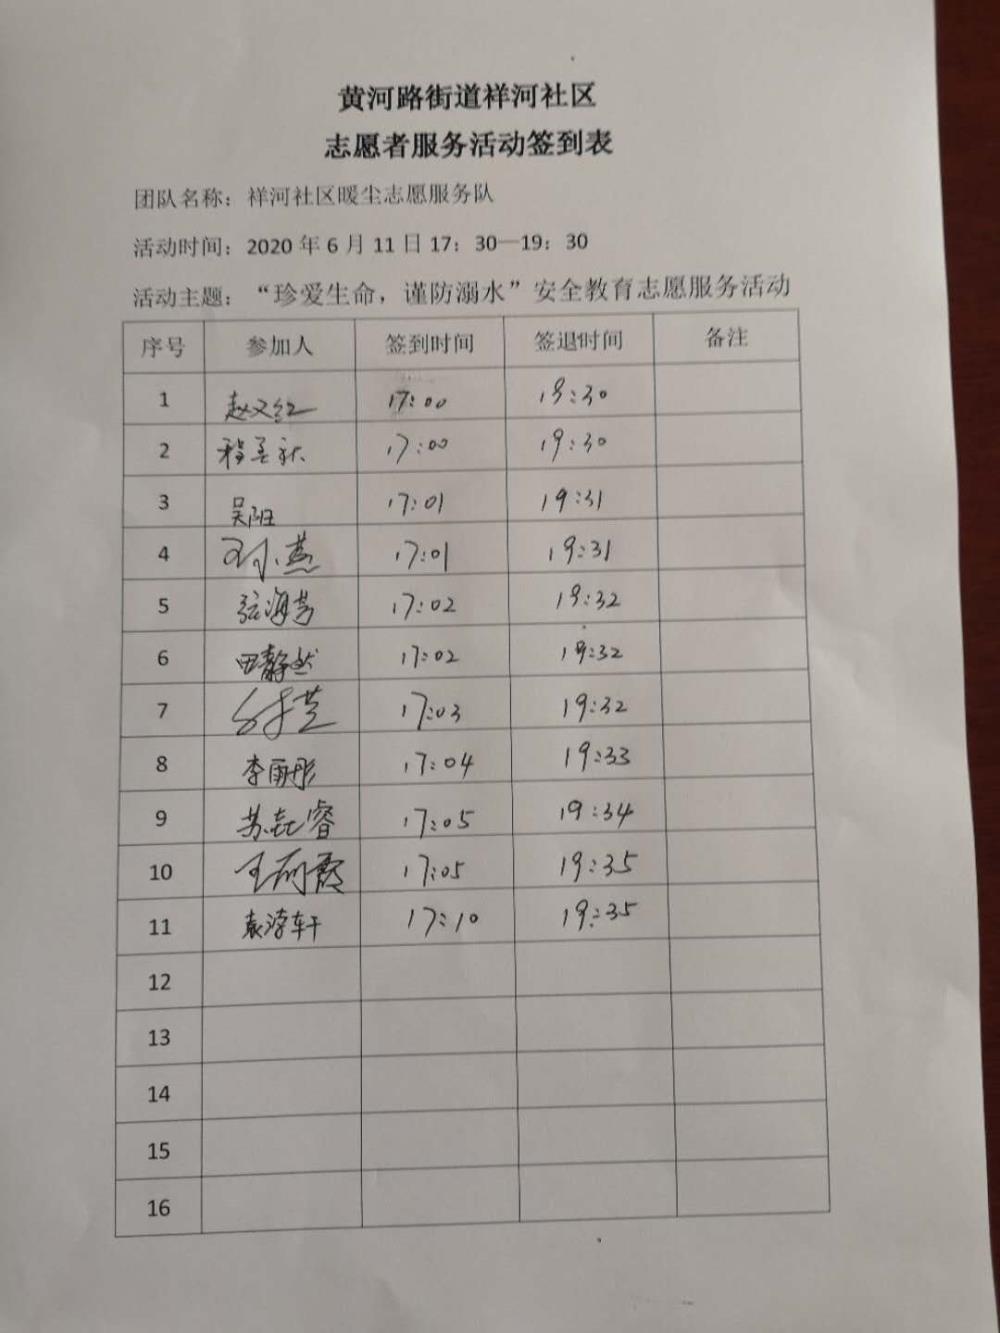 黄河路街道祥河社区
志愿者服务活动签到表
团队名称：祥河社区暖尘志愿服务队
活动时间：2020年6月11日17：30—19：30
活动主题：“珍爱生命，谨防溺水”安全教育志愿服务活动
序号 参加人 签到时间 签退时间 备注
1 赵文红 17:00 19:30
2 17:00 19:30
3 吴阳 17:01 19:31
4 17:01 19:31
5 张海芳 17:02 19:32
6 田静然 17:02 19:32
7 17:03 19:32
8 李雨彤 17:04 19:33
9 苏 睿 17:05 19:34
10 王 霞 17:05 19:35
11 袁 轩 17:10 19:35
12
13
14
15
16